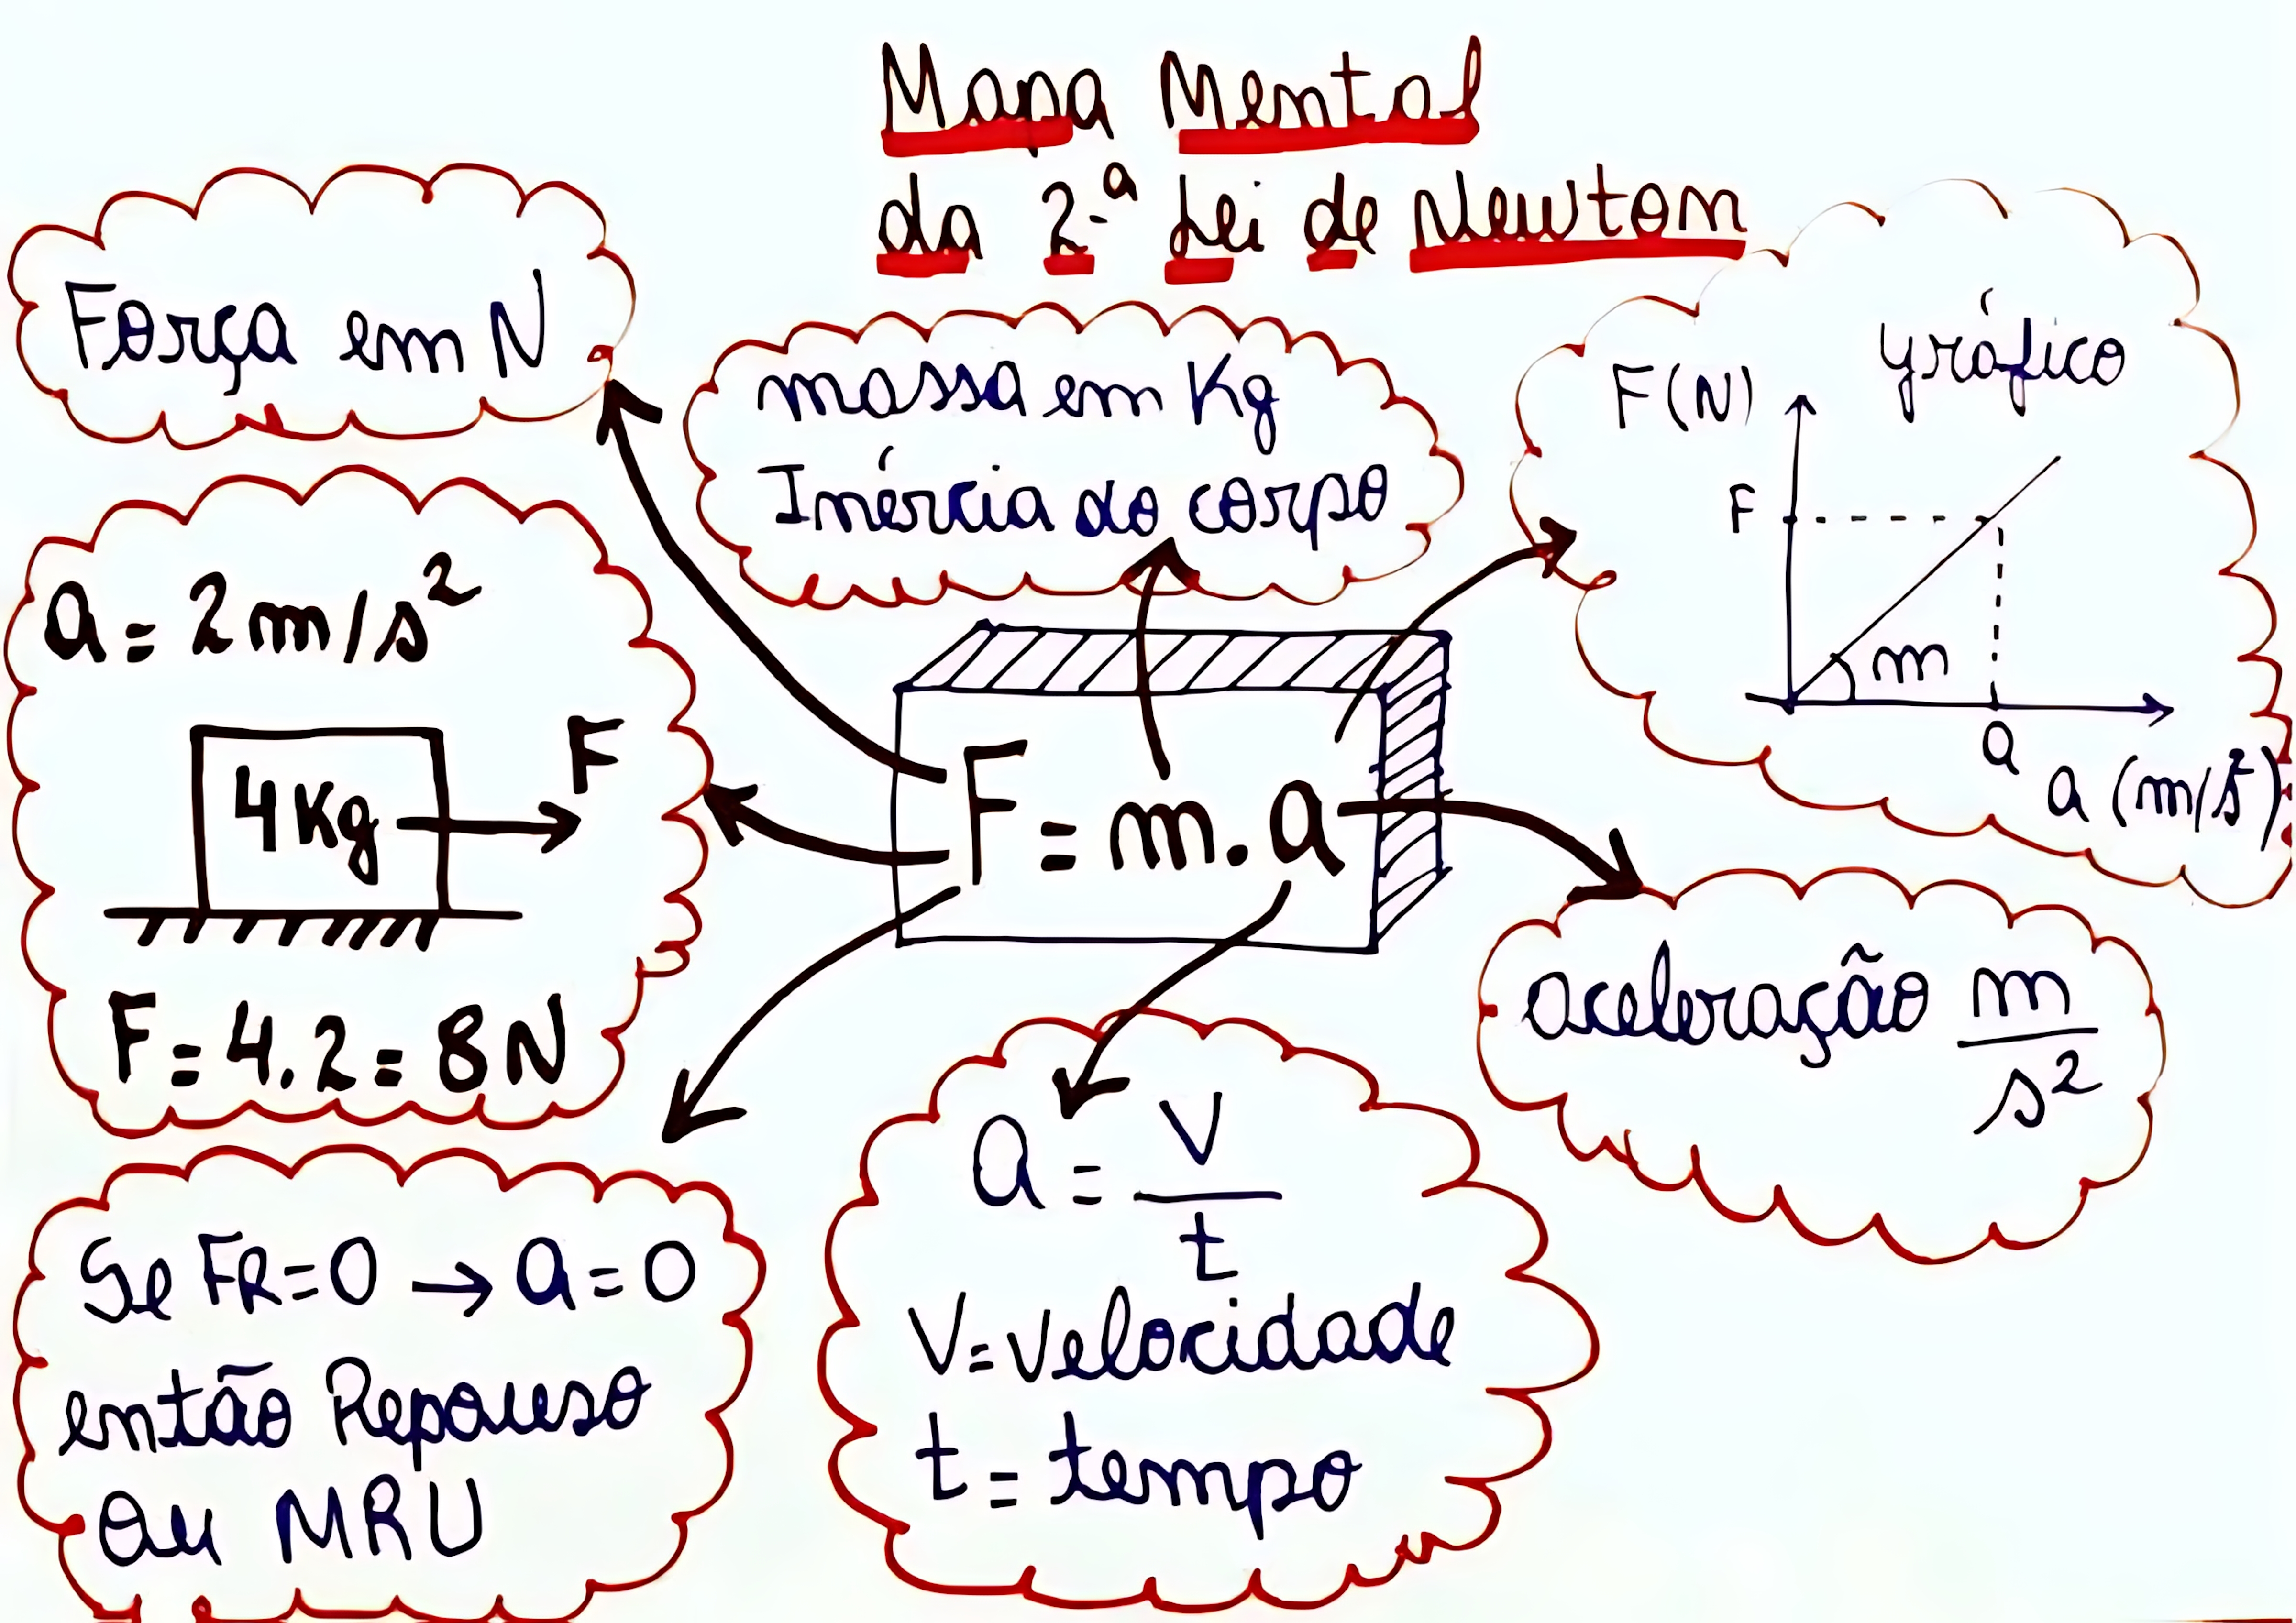 Mapa Mental
da 2.ª Lei de Newton
Força em N
massa em Kg
Inércia do corpo
gráfico
F(N)
F
m
a
a (m/s²)
a = 2m/s²
4Kg
F
F = 4.2 = 8N
F = m.a
aceleração m
s²
a = V
t
V = Velocidade
t = tempo
Se FR = 0 → a = 0
então Repouso
Ou MRU